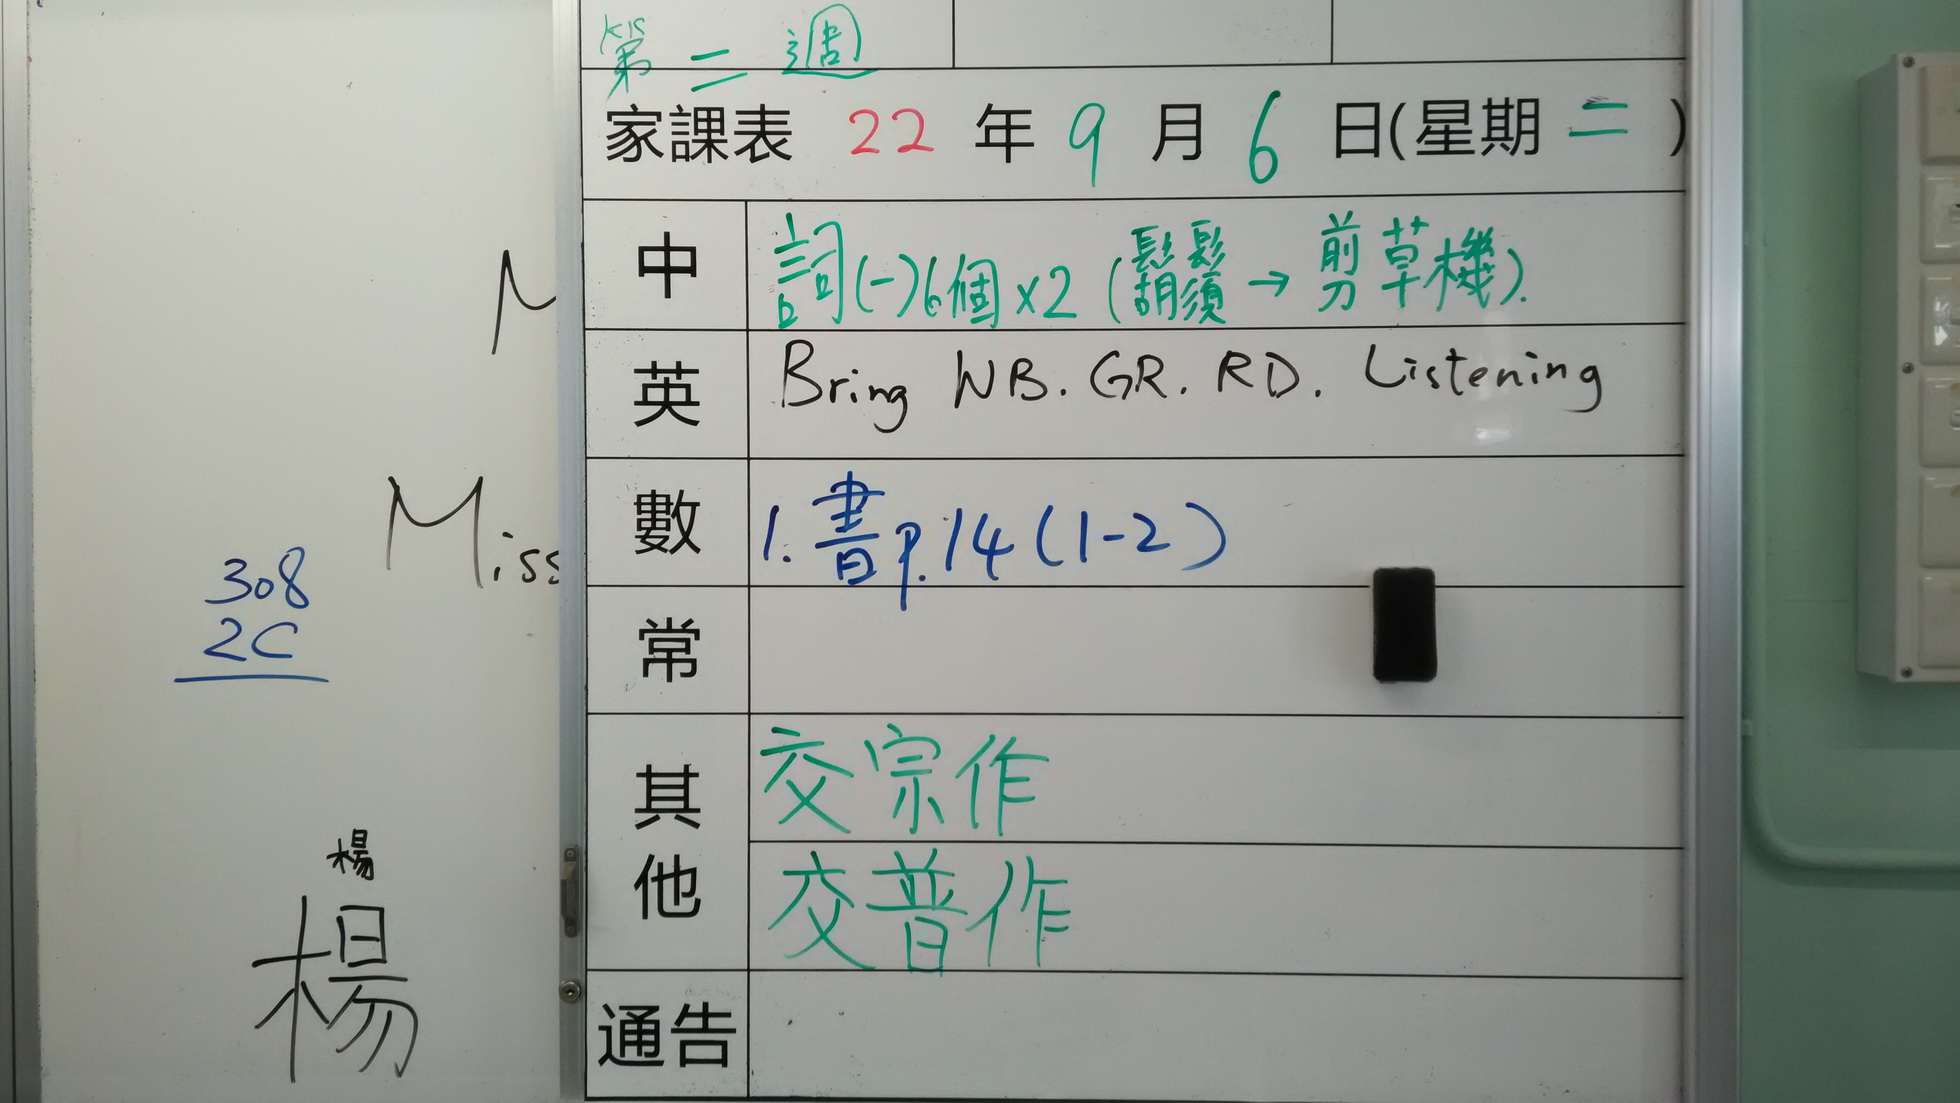 第二週
家課表 22 年 9 月 6 日(星期 二 )
中 詞(一)6個×2 (鬍鬚→剪草機).
英 Bring WB. GR. RD. Listening
數 1. 書 P.14 (1-2)
常
其他 交宗作
交普作
通告
M
Miss
308
2C
楊
楊